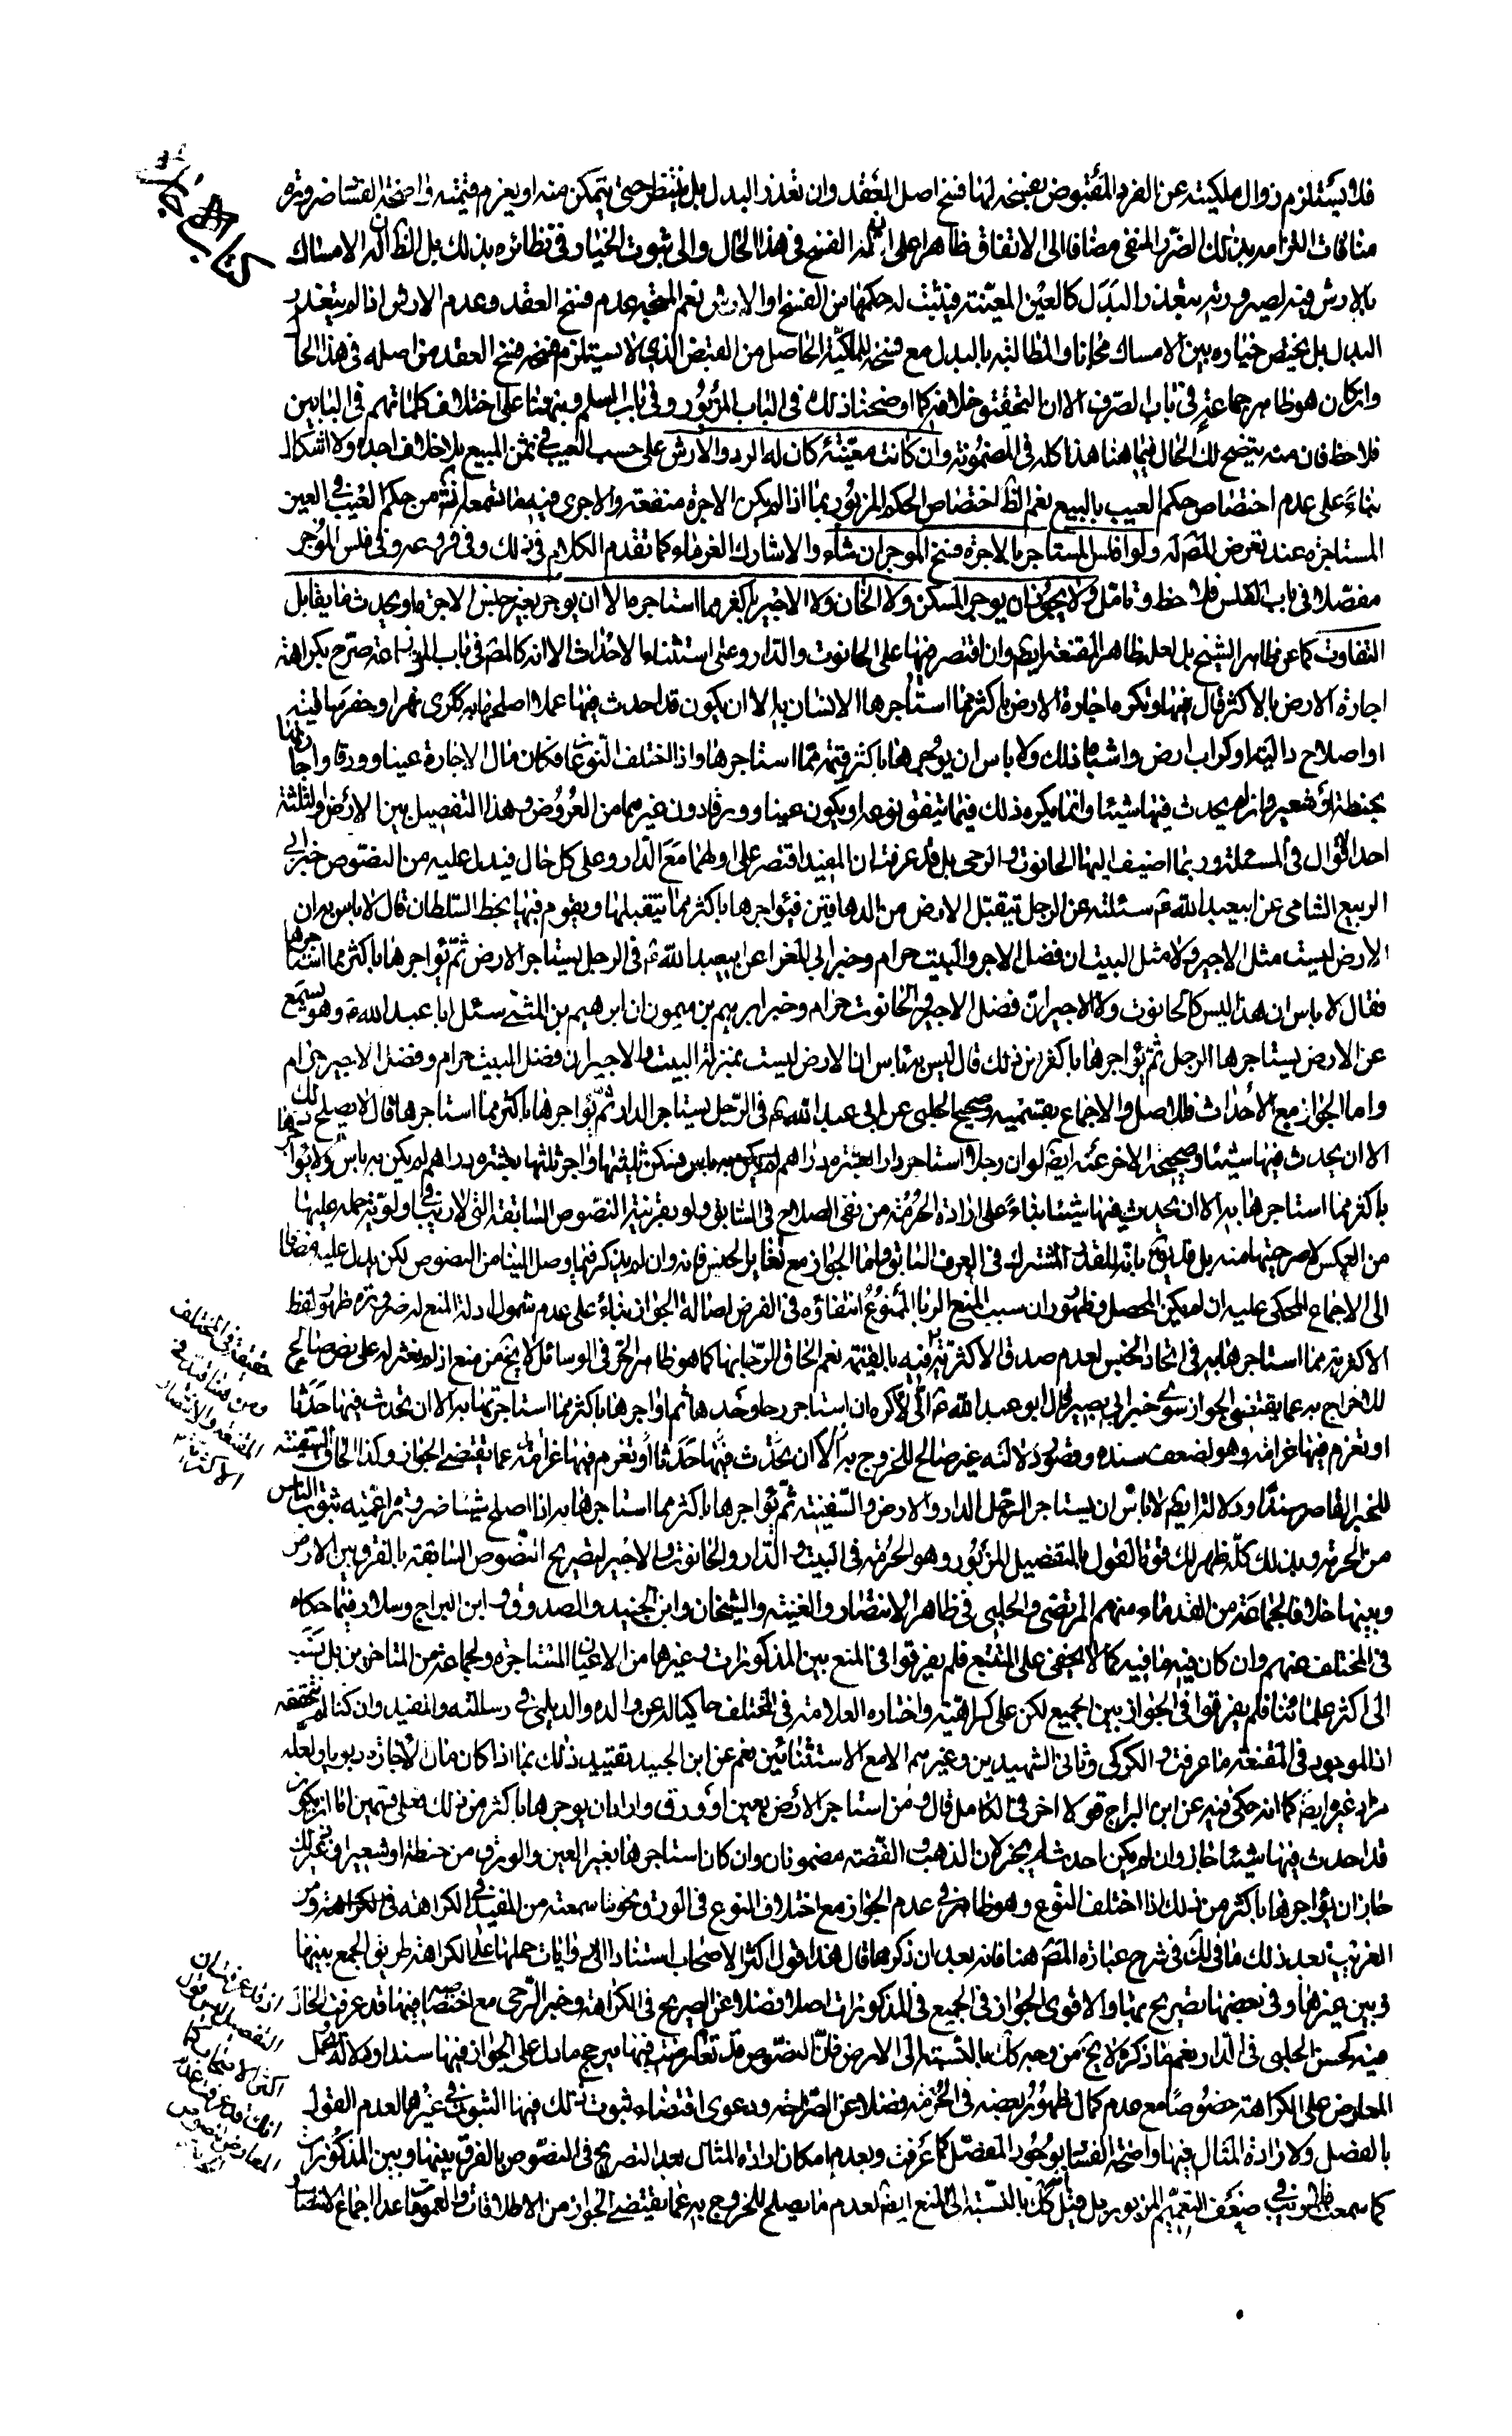 فلا يستلزم زوال ملكيته عن الفرد المقبوض بفسخه لها فسخ اصل العقد وان تعذر البدل بل ينتظر حتى يتمكن منه او يغرم قيمته واضحة الفساد ضرورة
منافات التزامه بذلك الضرر المنفى مضافا الى الاتفاق ظاهرا على ان له الفسخ فى هذا الحال والى ثبوت الخيار فى نظائره بذلك بل الظ ان له الامساك
بالارش فيه لصيرورته بتعذر البدل كالعين المعينة فيثبت له حكمها من الفسخ او الارش نعم المتجه عدم فسخ العقد وعدم الارش اذا لم يتعذر
البدل بل يختص خياره بين الامساك مجانا والمطالبة بالبدل مع فسخه للملكية الحاصل من القبض الذى لا يستلزم فسخه فسخ العقد من اصله فى هذا الحال
وان كان هو ظاهر جماعة فى باب الصرف الا ان التحقيق خلافه كما اوضحنا ذلك فى الباب المزبور وفى باب السلم ونبهنا على اختلاف كلماتهم فى البابين
فلاحظ فان منه يتضح لك الحال فيما هنا هذا كله فى المضمونة وان كانت معينة كان له الرد او الارش على حسب العيب فى ثمن المبيع بلا خلاف اجده ولا اشكال
بناء على عدم اختصاص حكم العيب بالبيع نعم الظ اختصاص الحكم المزبور بما اذا لم يكن الاجرة منفعة والا جرى فيه ما تسمعه انش من حكم العيب فى العين
المستاجرة عند تعرض المص له ولو افلس المستاجر بالاجرة فسخ الموجر ان شاء والا شارك الغرماء كما تقدم الكلام فى ذلك وفى فروعه وفى فلس الموجر
مفصلا فى باب الفلس فلاحظ وتامل ولا يجوز ان يوجر المسكن ولا الخان ولا الاجير باكثر مما استاجره الا ان يوجر بغير جنس الاجرة او يحدث ما يقابل
التفاوت كما عن ظاهر الشيخ بل لعله ظاهر المقنعة ايضم وان اقتصر فيها على الحانوت والدار وعلى استثناء الاحداث الا انه كالمص فى باب المزارعة صرح بكراهة
اجارة الارض بالاكثر قال فيها وتكره اجارة الارض باكثر مما استاجرها الانسان به الا ان يكون قد احدث فيها عملا اصلحها به ككرى نهر او حفر
او اصلاح دالية او كراب ارض واشباه ذلك ولا باس ان يوجرها باكثر قيمة مما استاجرها واذا اختلف النوعان فكان مال الاجارة عينا وورقا واجارتها
بحنطة او شعير وان لم يحدث فيها شيئا وانما يكره ذلك فيما يتفق نوعه او يكون عينا وورقا دون غيرهما من العروض وهذا التفصيل بين الارض والثلثة
احد الاقوال فى المسئلة وربما اضيف اليها الحانوت والرحى بل قد عرفت ان المفيد اقتصر على اولهما مع الدار وعلى كل حال فيدل عليه من النصوص خبر ابى
الربيع الشامى عن ابيعبد الله ع سئلته عن الرجل يتقبل الارض من الدهاقين فيؤاجرها باكثر مما يتقبلها ويقوم فيها بحظ السلطان قال لا باس به ان
الارض ليست مثل الاجير ولا مثل البيت ان فضل الاجير والبيت حرام وخبر ابى المغرا عن ابيعبد الله ع فى الرجل يستاجر الارض ثم يؤاجرها باكثر مما استاجرها
فقال لا باس ان هذا ليس كالحانوت ولا الاجير ان فضل الاجير والحانوت حرام وخبر ابرهيم بن ميمون ان ابرهيم بن المثنى سئل ابا عبد الله ع وهو يسمع
عن الارض يستاجرها الرجل ثم يؤاجرها باكثر من ذلك قال ليس به باس ان الارض ليست بمنزلة البيت والاجير ان فضل البيت حرام وفضل الاجير حرام
واما الجواز مع الاحداث فللاصل والاجماع بقسميه وصحيح الحلبى عن ابى عبد الله ع فى الرجل يستاجر الدار ثم يؤاجرها باكثر مما استاجرها قال لا يصلح ذلك
الا ان يحدث فيها شيئا وصحيحه الاخر عنه ايض لو ان رجلا استاجر دارا بعشرة دراهم فسكن ثلثيها واجر ثلثها بعشرة دراهم لم يكن به باس ولا يؤاجرها
باكثر مما استاجرها به الا ان يحدث فيها شيئا بناء على ارادة الحرمة من نفى الصلاح فى السابق ولو بقرينة النصوص السابقة التى لا ريب فى اولوية حمله عليها
من العكس لصراحتها منه بل قد يق بانه للقدر المشترك فى العرف السابق واما الجواز مع تغاير الجنس فانه وان لم يذكر فيما وصل الينا من النصوص لكن يدل عليه مضافا
الى الاجماع المحكى عليه ان لم يكن المحصل وظهور ان سبب المنع الربا الممنوع انتفاؤه فى الفرض اصالة الجواز بناء على عدم شمول ادلة المنع له ضرورة ظهور لفظ
الاكثرية مما استاجرها به فى اتحاد الجنس لعدم صدق الاكثرية فيه بالقيمة نعم الحاق الرحا بها كما هو ظاهر الحر فى الوسائل لا يخ من منع اذ لم نعثر له على نص صالح
للاخراج به عما يقتضى الجواز سوى خبر ابى بصير قال ابو عبد الله ع انى لاكره ان استاجر رحا وحدها ثم اواجرها باكثر مما استاجرتها به الا ان تحدث فيها حدثا
او تغرم فيها غرامة وهو لضعف سنده وقصور دلالته غير صالح للخروج به عما يقتضى الجواز وكذا الحاق السفينة
للخبر القاصر سندا ودلالة ايضم لا باس ان يستاجر الرجل الدار والارض والسفينة ثم يؤاجرها باكثر مما استاجرها به اذا اصلح شيئا ضرورة اعمية ثبوت الباس
من الحرمة وبذلك كله ظهر لك قوة القول بالتفصيل المزبور وهو الحرمة فى البيت والدار والحانوت والاجير لتصريح النصوص السابقة بالفرق بين الارض
وبينها خلافا لجماعة من القدماء منهم المرتضى والحلبى فى ظاهر الانتصار والغنية والشيخان وابن الجنيد والصدوق وابن البراج وسلار فيما حكاه
فى المختلف عنهم وان كان فيه ما فيه كما لا يخفى على المتتبع فلم يفرقوا فى المنع بين المذكورات وغيرها من الاعيان المستاجرة ولجماعة من المتاخرين بل نسب
الى اكثر علمائنا فلم يفرقوا فى الجواز بين الجميع لكن على كراهية واختاره العلامة فى المختلف حاكيا له عن والده والديلمى فى رسالته والمفيد وان كنا لم نتحققه
اذ الموجود فى المقنعة ما عرفت والكركى وثانى الشهيدين وغيرهم الا مع الاستثنائين نعم عن ابن الجنيد تقييد ذلك بما اذا كان مال الاجارة ربويا ولعله
مراد غيره ايض كما انه حكى فيه عن ابن البراج قولا اخر فى الكامل قال ومن استاجر الارض بعين او ورق واراد ان يوجرها باكثر من ذلك فعلى قسمين اما ان يكون
قد احدث فيها شيئا جاز وان لم يكن احدث لم يجز لان الذهب والفضة مضمونان وان كان استاجرها بغير العين والورق من حنطة او شعير او غير ذلك
جاز ان يؤاجرها باكثر من ذلك اذا اختلف النوع وهو ظاهر فى عدم الجواز مع اختلاف النوع فى الورق ونحو ما سمعته من المفيد فى الكراهة ومن
الغريب بعد ذلك ما فى لك فى شرح عبارة المص هنا فانه بعد ان ذكرها قال هذا قول اكثر الاصحاب استنادا الى روايات حملها على الكراهة طريق الجمع بينها
وبين غيرها وفى بعضها تصريح بها والاقوى الجواز فى الجميع فى المذكورات اصلا فضلا عن الصريح فى الكراهة وخبر الرحى مع اختصاصه بها قد عرفت الحال
فيه كحسن الحلبى فى الدار نعم ما ذكره لا يخ من وجه كك بالنسبة الى الارض فان النصوص قد تعارضت فيها فيرجح ما دل على الجواز فيها سندا ودلالة ويحمل
المعارض على الكراهة خصوصا مع عدم كمال ظهور بعضه فى الحرمة فضلا عن الصراحة ودعوى اقتضاء ثبوت ذلك فيها الثبوت فى غيرها لعدم القول
بالفصل ولارادة المثال فيها واضحة الفساد بوجود المفصل كما عرفت وبعدم امكان ارادة المثال بعد التصريح فى النصوص بالفرق بينها وبين المذكورات
كما سمعت فلا ريب فى ضعف التعميم المزبور بل قيل كك بالنسبة الى المنع ايض لعدم ما يصلح للخروج به عما يقتضى الجواز من الاطلاقات والعمومات عدا اجماع الانتصار